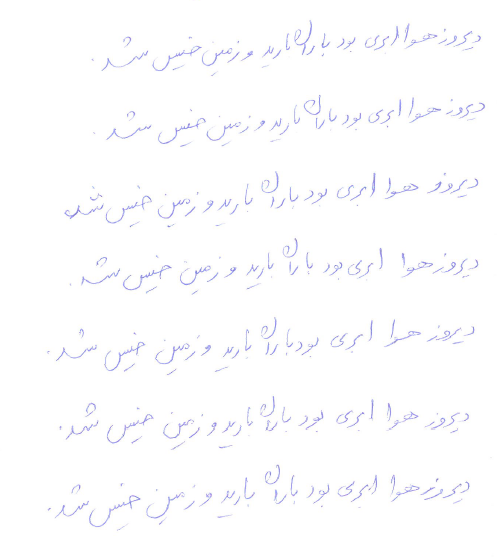 دیروز هوا ابری بود باران بارید و زمین خیس شد.
دیروز هوا ابری بود باران بارید و زمین خیس شد.
دیروز هوا ابری بود باران بارید و زمین خیس شد.
دیروز هوا ابری بود باران بارید و زمین خیس شد.
دیروز هوا ابری بود باران بارید و زمین خیس شد.
دیروز هوا ابری بود باران بارید و زمین خیس شد.
دیروز هوا ابری بود باران بارید و زمین خیس شد.